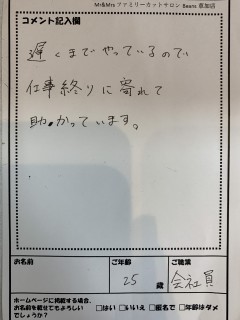 Mr&Mrs ファミリーカットサロン Bears 草加店
コメント記入欄
遅くまでやっているので
仕事終りに寄れて
助かっています。
お名前
ご年齢
ご職業
25 歳
会社員
ホームページに掲載する場合、
お名前を載せてもよろしい
でしょうか?
□はい □いいえ □仮名で □年齢はダメ